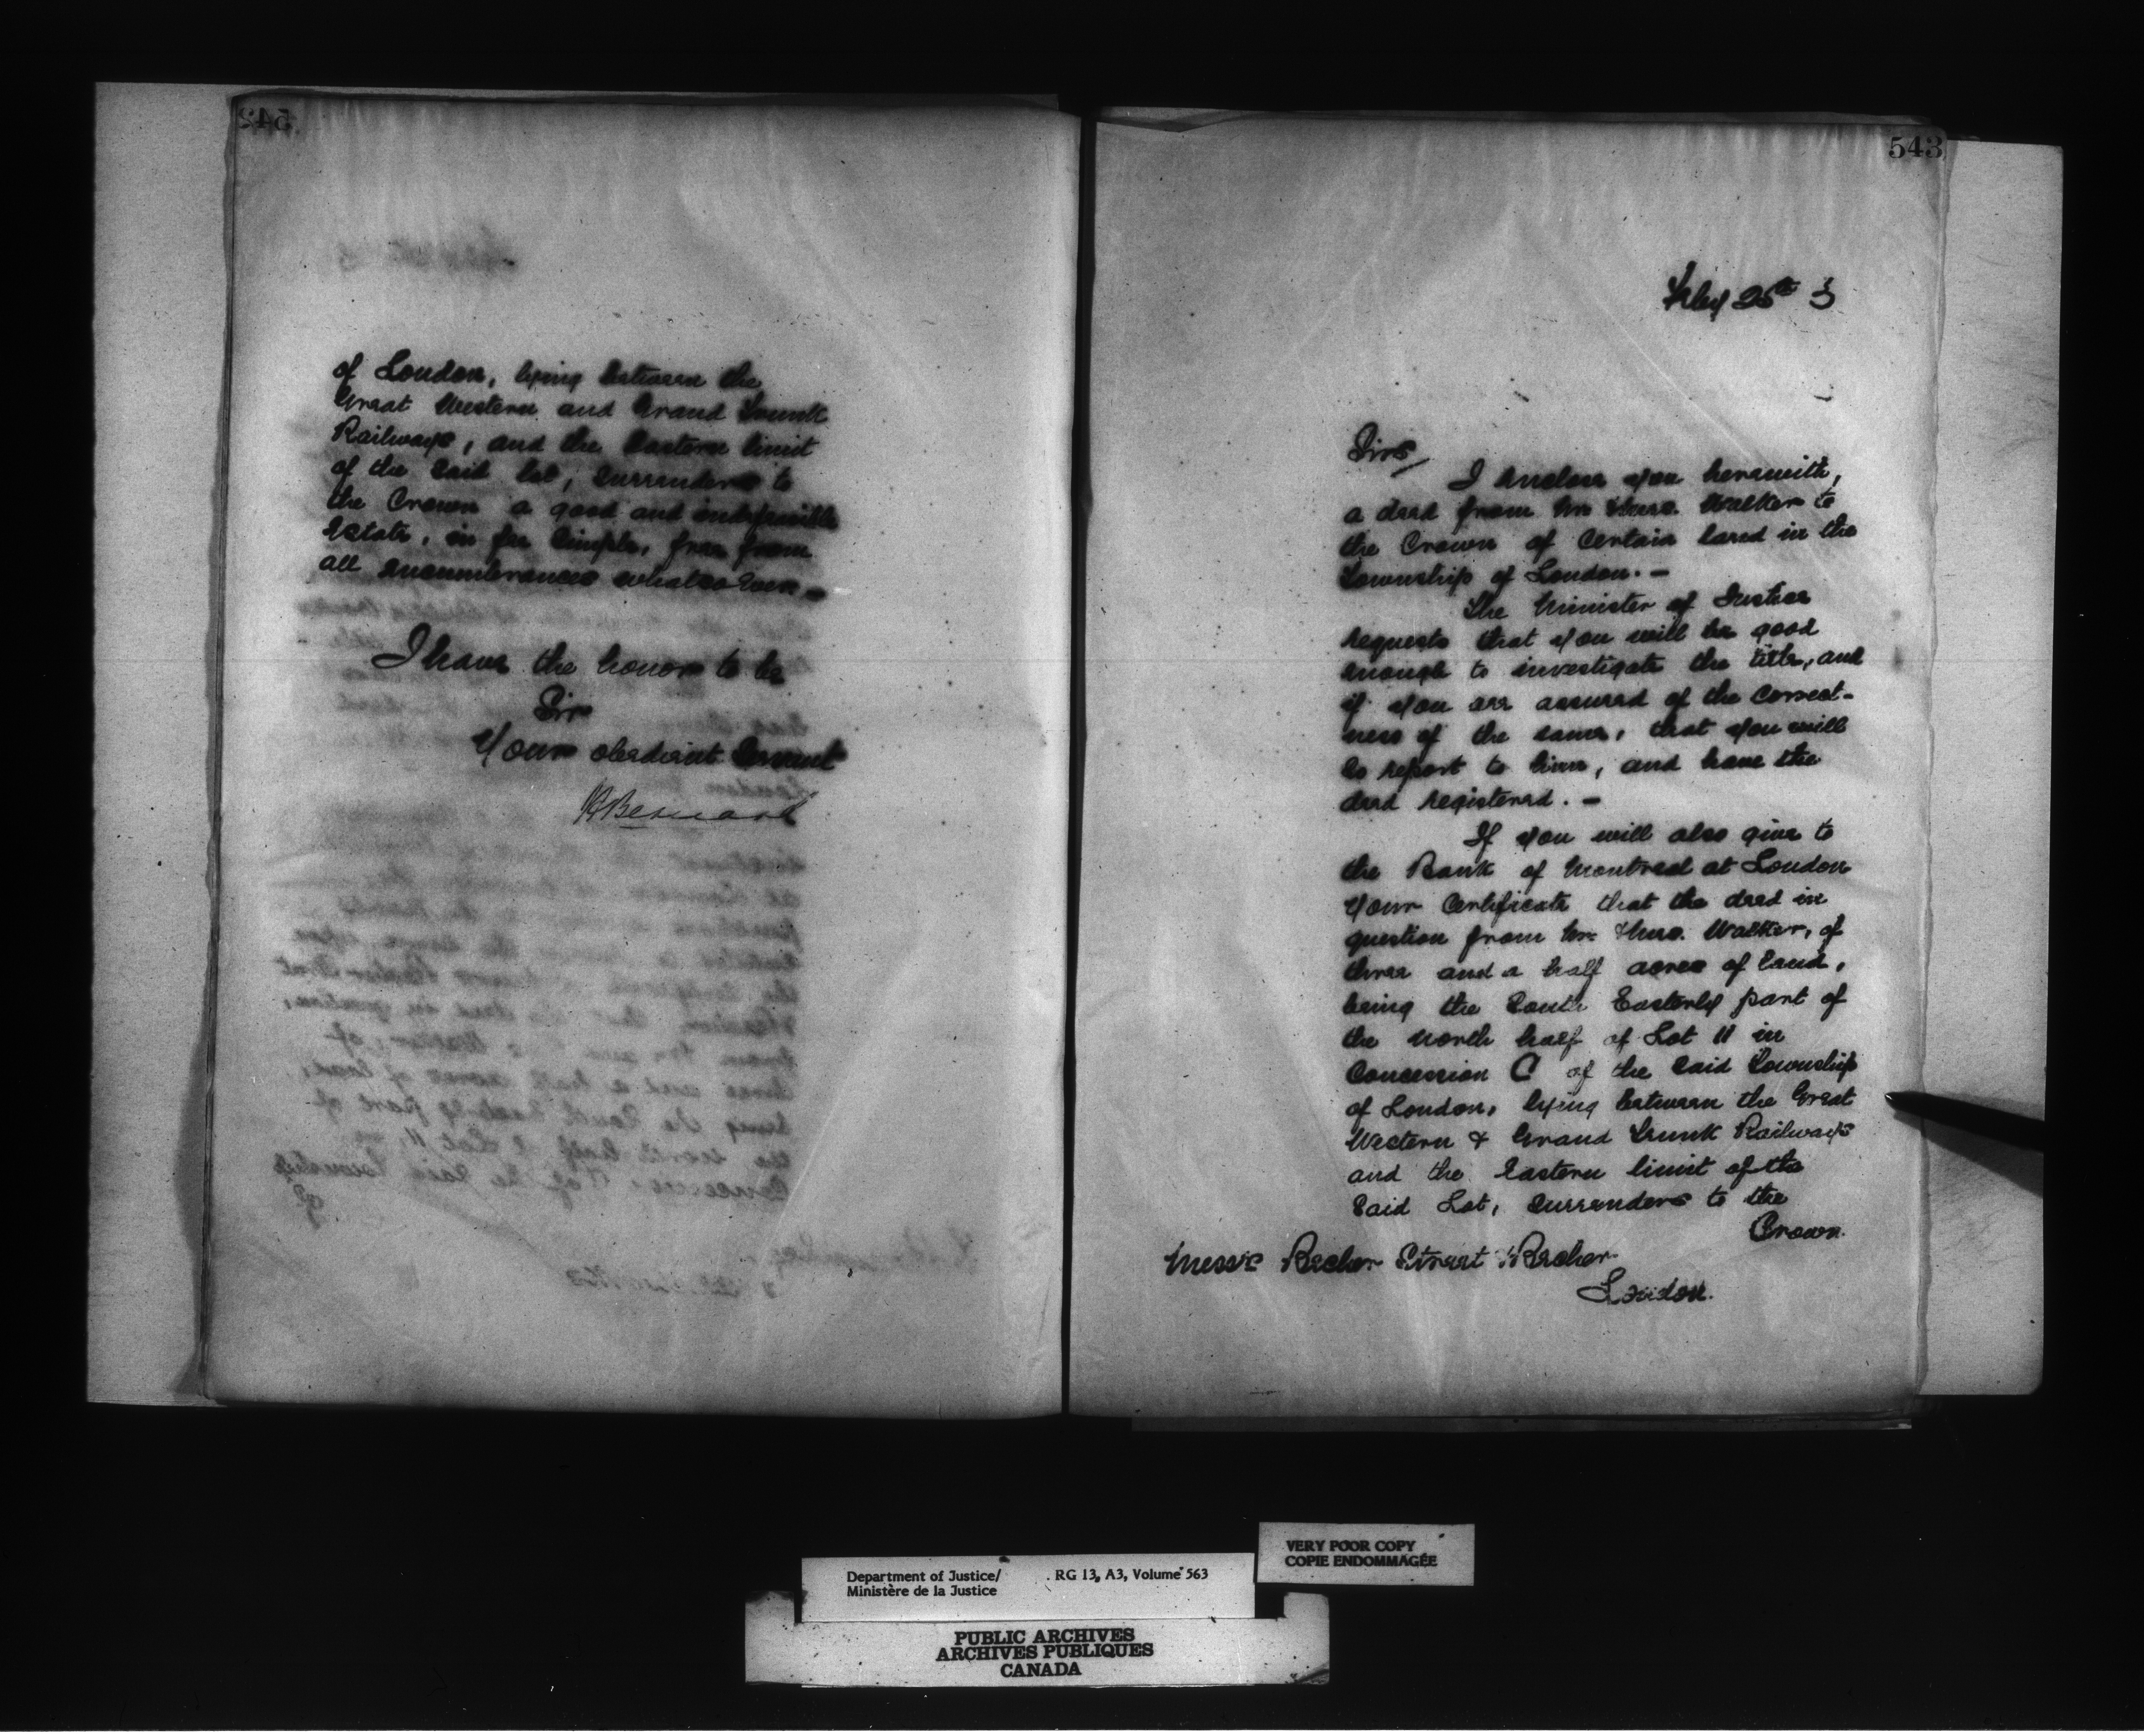 542
of London, lying between the
Great Western and Grand Trunk
Railways, and the Eastern limit
of the Said lot, Surrenders to
the Crown a good and indefeasible
Estate, in fee Simple, free from
all encumbrances whatsoever. —
I have the honor to be
Sir
Your obedient Servant
H Bernard
543
Feby 25th 3
Sirs,
I Enclose you herewith,
a deed from Mr Thos. Walker to
the Crown of Certain land in the
Township of London. —
The Minister of Justice
requests that you will be good
enough to investigate the title, and
if you are assured of the Correct-
ness of the same, that you will
So report to him, and have the
deed registered. —
If you will also give to
the Bank of Montreal at London
your Certificate that the deed in
question from Mr Thos. Walker, of
three and a half acres of land,
being the South Easterly part of
the north half of Lot 11 in
Concession C of the Said Township
of London, lying between the Great
Western & Grand Trunk Railways
and the Eastern limit of the
Said Lot, Surrenders to the
Crown.
Messrs Becher Street & Becher
London.
VERY POOR COPY
COPIE ENDOMMAGÉE
Department of Justice/ RG 13, A3, Volume 563
Ministère de la Justice
PUBLIC ARCHIVES
ARCHIVES PUBLIQUES
CANADA